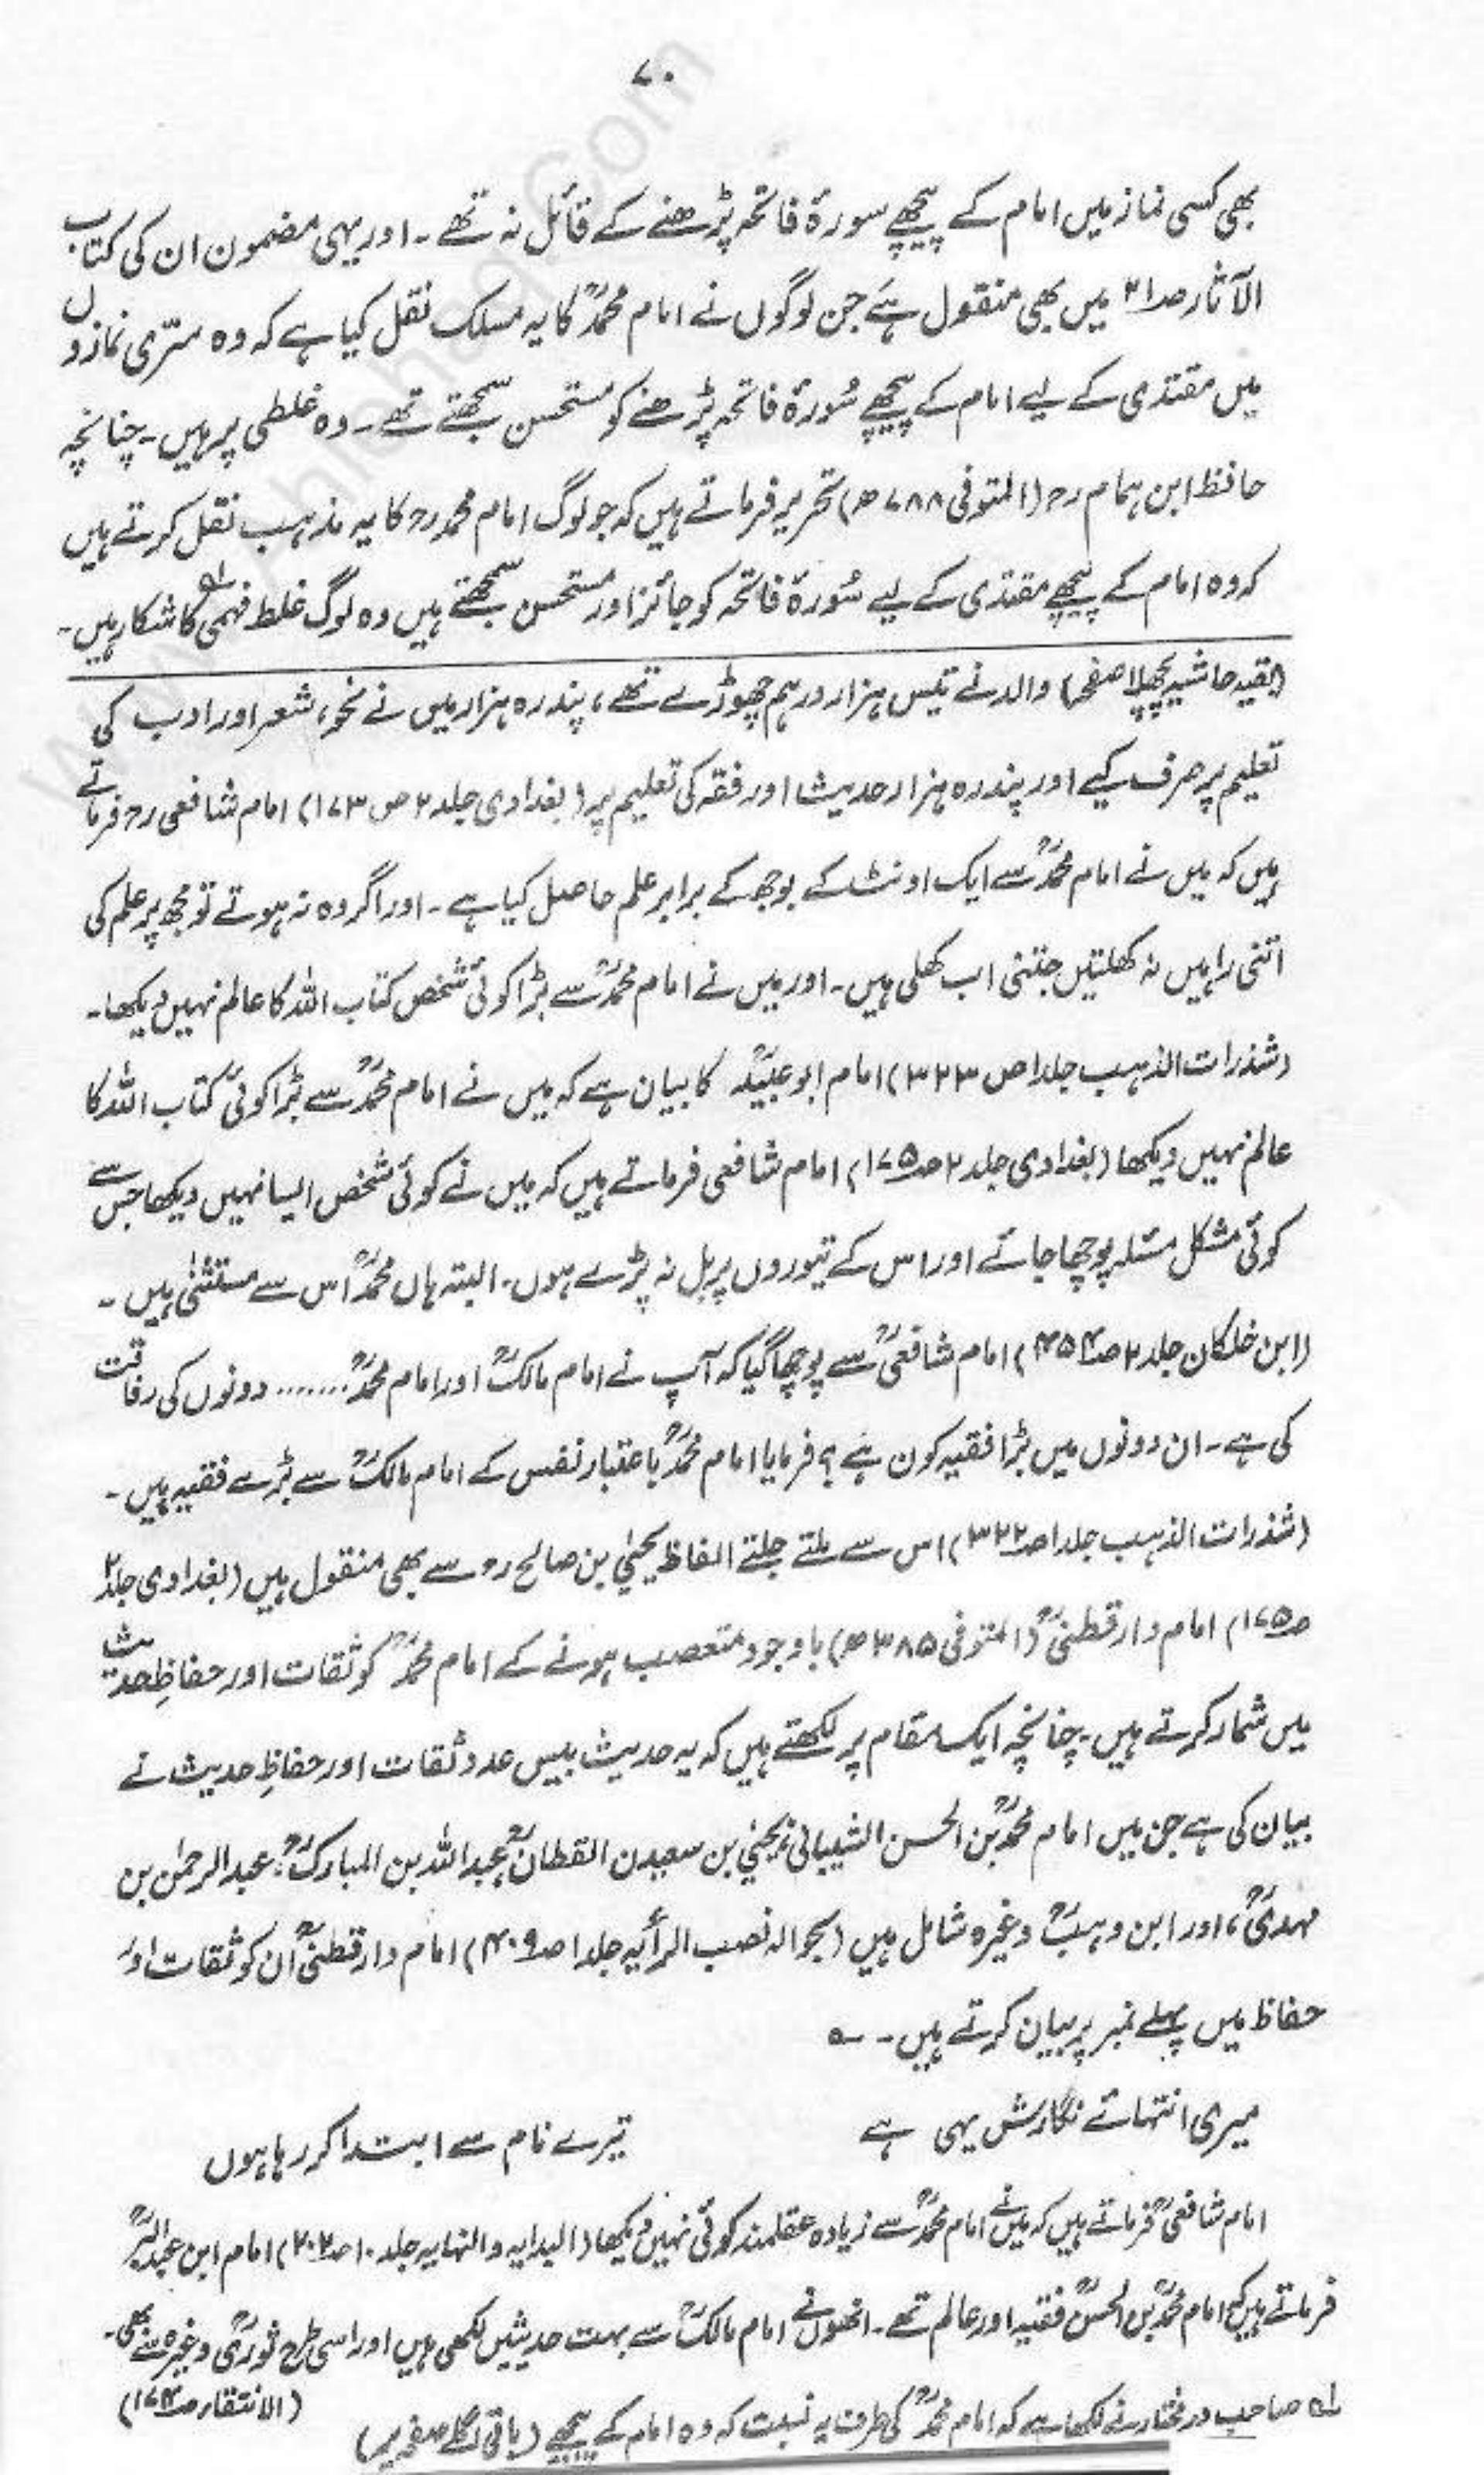 ۷۰
بھی کسی نماز میں امام کے پیچھے سورۃ فاتحہ پڑھنے کے قائل نہ تھے ۔ اور یہی مضمون ان کی کتاب
الآثار صـ۲۱ میں بھی منقول ہے جن لوگوں نے امام محمدؒ کا یہ مسلک نقل کیا ہے کہ وہ سرّی نمازوں
میں مقتدی کے لیے امام کے پیچھے سُورۃ فاتحہ پڑھنے کو مستحسن سمجھتے تھے ۔ وہ غلطی پر ہیں ۔ چنانچہ
حافظ ابن ہمام رح (المتوفی ۷۸۸ھ) تحریر فرماتے ہیں کہ جو لوگ امام محمد رح کا یہ مذہب نقل کرتے ہیں
کہ وہ امام کے پیچھے مقتدی کے لیے سُورۃ فاتحہ کو جائز اور مستحسن سمجھتے ہیں وہ لوگ غلط فہمی کا شکار ہیں ۔ لہ
(بقیہ حاشیہ پچھلا صفحہ) والد نے تیس ہزار درہم چھوڑے تھے ، پندرہ ہزار میں نے نحو ، شعر اور ادب کی
تعلیم پر صرف کیے اور پندرہ ہزار حدیث اور فقہ کی تعلیم پر (بغدادی جلد ۲ ص ۱۷۳) امام شافعی رح فرماتے
ہیں کہ میں نے امام محمدؒ سے ایک اونٹ کے بوجھ کے برابر علم حاصل کیا ہے ۔ اور اگر وہ نہ ہوتے تو مجھ پر علم کی
اتنی راہیں نہ کھلتیں جتنی اب کھلی ہیں ۔ اور میں نے امام محمدؒ سے بڑا کوئی شخص کتاب اللہ کا عالم نہیں دیکھا ۔
(شذرات الذہب جلد ۱ ص ۳۲۳) امام ابو عبیدؒ کا بیان ہے کہ میں نے امام محمدؒ سے بڑا کوئی کتاب اللہ کا
عالم نہیں دیکھا (بغدادی جلد ۲ صـ۱۷۵) امام شافعی فرماتے ہیں کہ میں نے کوئی شخص ایسا نہیں دیکھا جس سے
کوئی مشکل مسئلہ پوچھا جائے اور اس کے تیوروں پر بل نہ پڑے ہوں ۔ البتہ ہاں محمدؒ اس سے مستثنٰی ہیں ۔
(ابن خلکان جلد ۲ صـ۴۵۴) امام شافعیؒ سے پوچھا گیا کہ آپ نے امام مالکؒ اور امام محمدؒ ........ دونوں کی رفاقت
کی ہے ۔ ان دونوں میں بڑا فقیہ کون ہے ؟ فرمایا امام محمدؒ باعتبار نفس کے امام مالکؒ سے بڑے فقیہ ہیں ۔
(شذرات الذہب جلد ۱ صـ۳۲۲) اس سے ملتے جلتے الفاظ یحیٰی بن صالح رح سے بھی منقول ہیں (بغدادی جلد ۲
صـ۱۷۵) امام دارقطنیؒ (المتوفی ۳۸۵ھ) باوجود متعصب ہونے کے امام محمدؒ کو ثقات اور حفاظِ حدیث
میں شمار کرتے ہیں ۔ چنانچہ ایک مقام پر لکھتے ہیں کہ یہ حدیث بیس عدد ثقات اور حفاظِ حدیث نے
بیان کی ہے جن میں امام محمدؒ بن الحسن الشیبانی ، یحیٰی بن سعیدن القطانؒ ، عبداللہ بن المبارکؒ ، عبدالرحمٰن بن
مہدیؒ ، اور ابن وہبؒ وغیرہ شامل ہیں (بحوالہ نصب الرأیہ جلد ۱ صـ۴۰۹) امام دارقطنیؒ ان کو ثقات اور
حفاظ میں پہلے نمبر پر بیان کرتے ہیں ۔ ؎
میری انتہائے نگارش یہی ہے تیرے نام سے ابتدا کر رہا ہوں
امام شافعیؒ فرماتے ہیں کہ میں نے امام محمدؒ سے زیادہ عقلمند کوئی نہیں دیکھا (البدایہ والنہایہ جلد ۱۰ صـ۲۰۲) امام ابن عبدالبرؒ
فرماتے ہیں کہ امام محمدؒ بن الحسنؒ فقیہ اور عالم تھے ۔ انھوں نے امام مالکؒ سے بہت حدیثیں لکھی ہیں اور اسی طرح ثوریؒ وغیرہ سے بھی ۔
(الانتقاء صـ۱۷۴)
لہ صاحب درمختار نے لکھا ہے کہ امام محمدؒ کی طرف یہ نسبت کہ وہ امام کے پیچھے (باقی اگلے صفحہ پر)